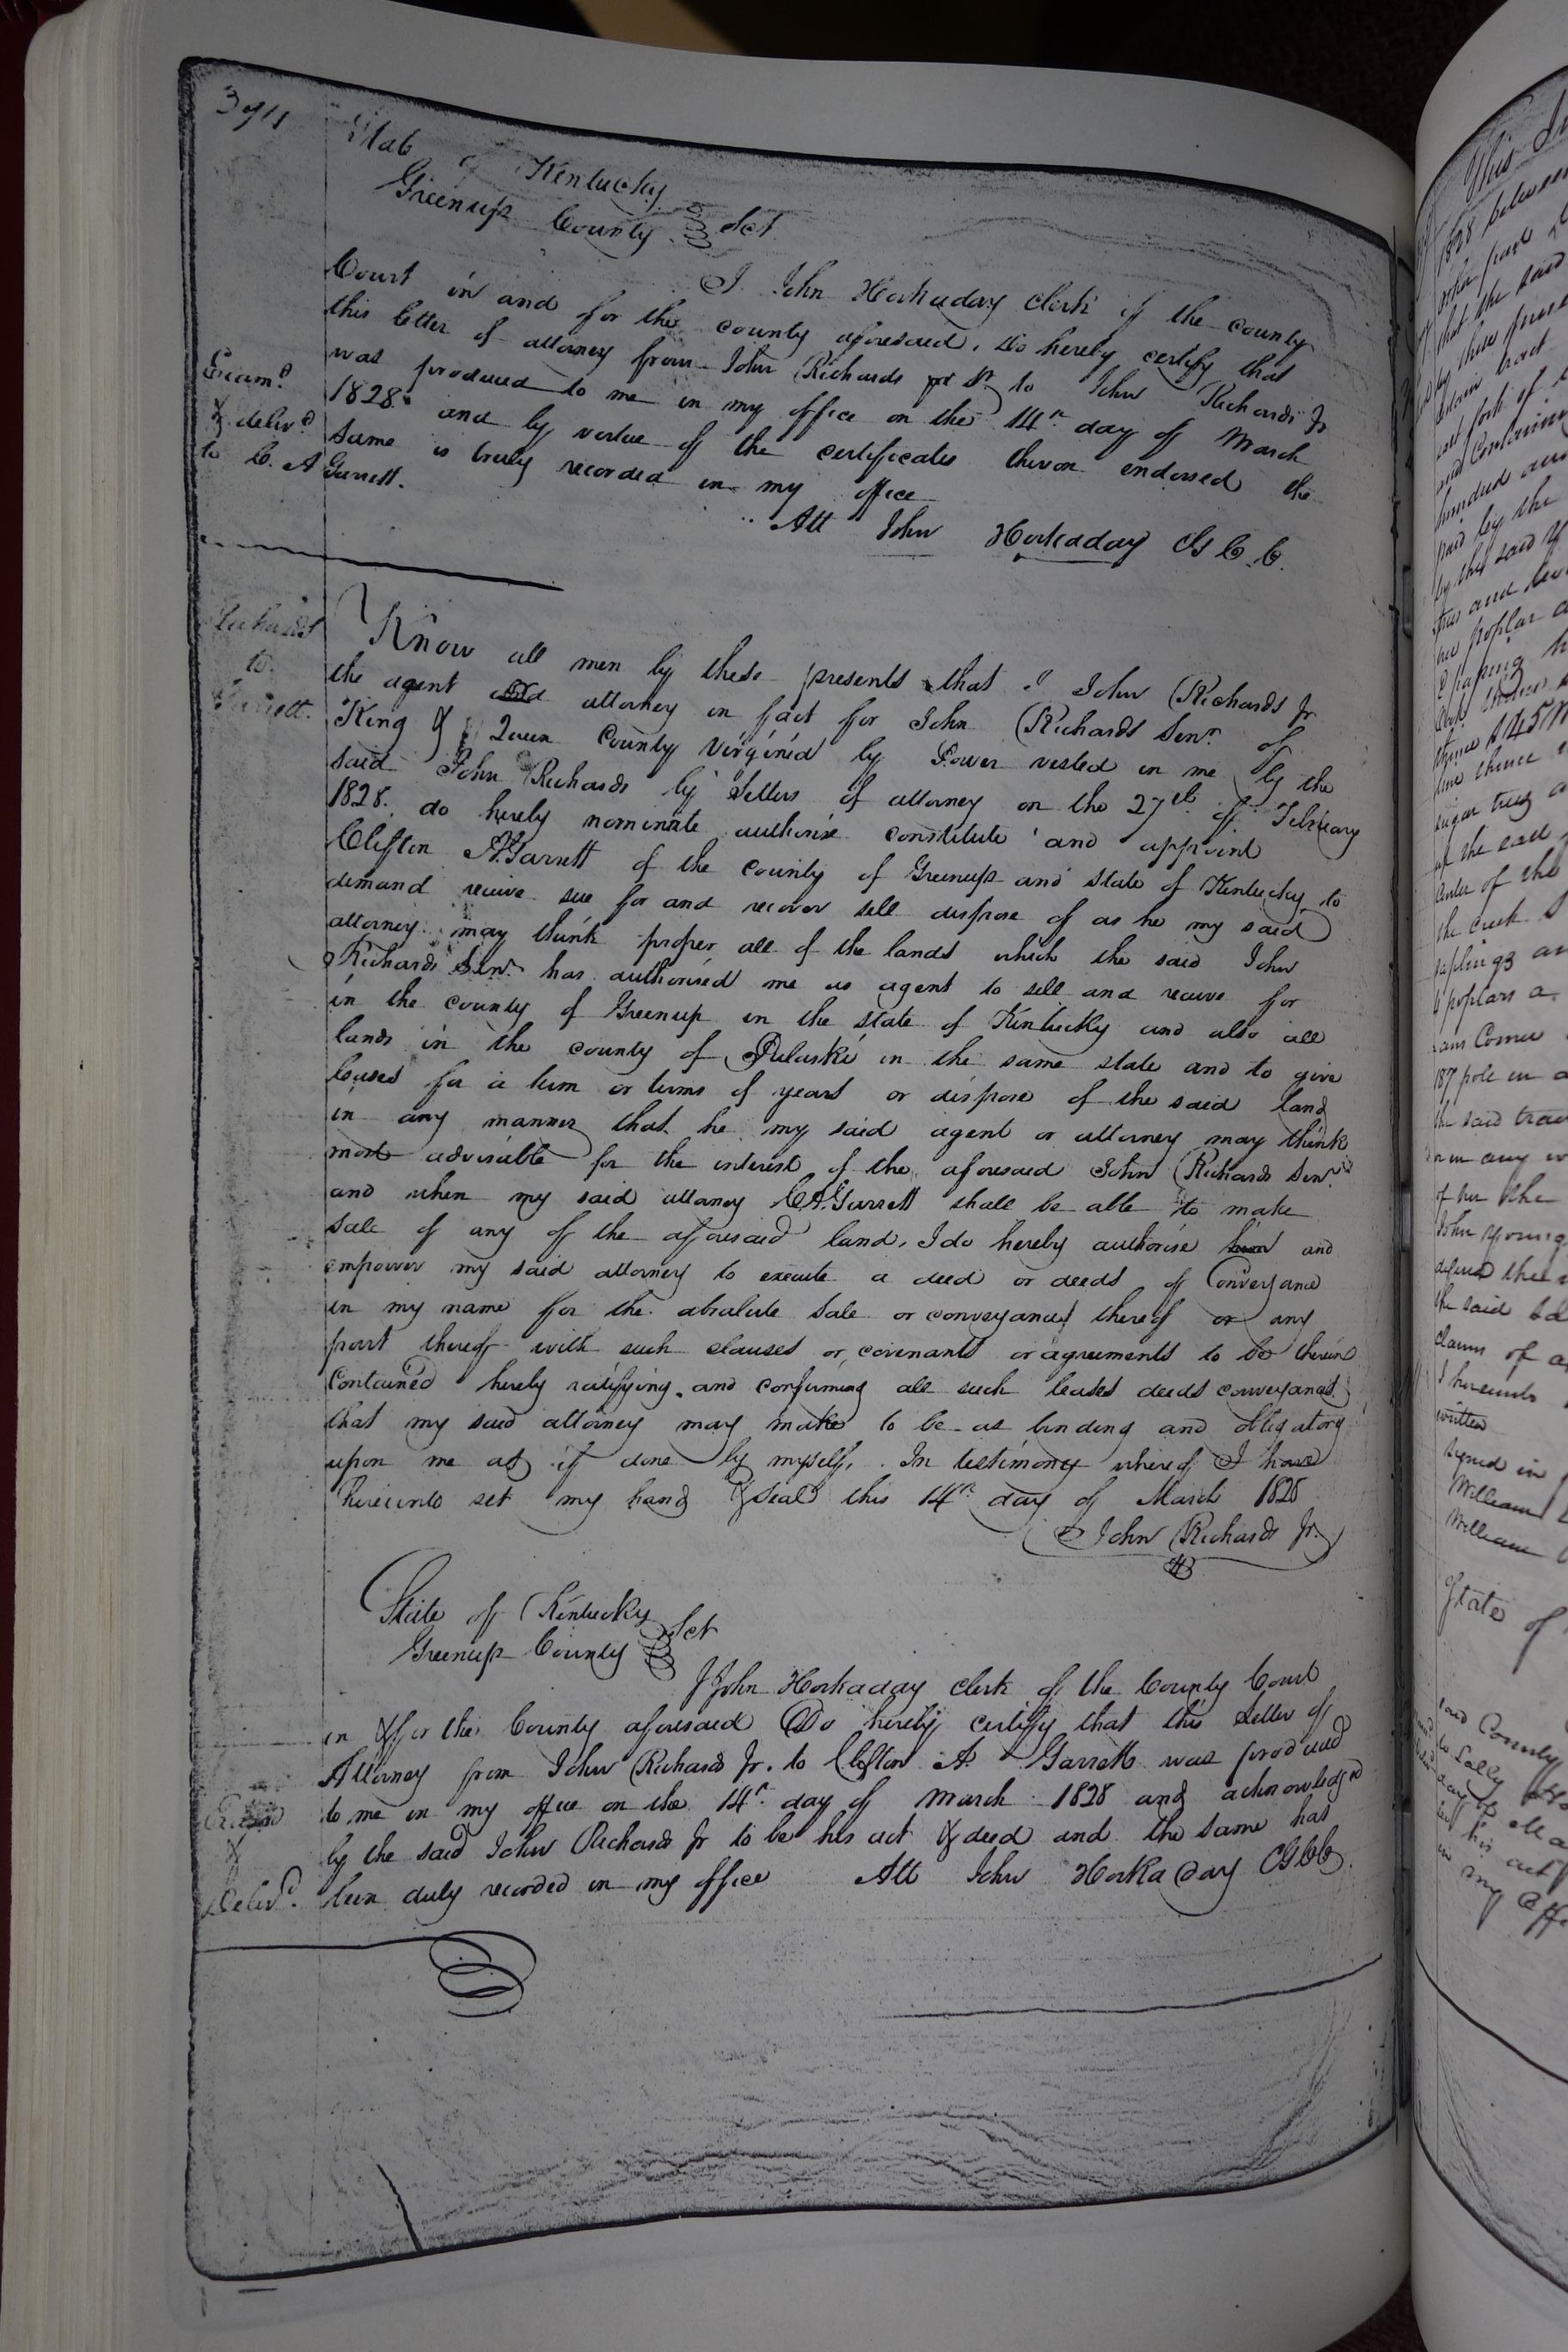 State of Kentucky
Greenup County Sct
I John Hockaday Clerk of the county
Court in and for the county aforesaid, do hereby certify that
this letter of attorney from John Richards Sr to John Richards Jr
was produced to me in my office on the 14th day of March
1828. and by vertue of the certificates theron endorsed the
same is truly recorded in my office
Att John Hockaday C G C C.
Exam.d
& deliv.d
to C. A Garrett.
Richards
to
Garrett.
Know all men by these presents that I John Richards Jr
the agent and attorney in fact for John Richards Senr. of
King & Queen County Virginia by Power vested in me by the
said John Richards by Letters of attorney on the 27th of February
1828. do hereby nominate authorise constitute and appoint
Clifton A. Garrett of the county of Greenup and State of Kentucky to
demand receive sue for and recover sell dispose of as he my said
attorney may think proper all of the lands which the said John
Richards Senr. has authorised me as agent to sell and receive for
in the county of Greenup in the state of Kentucky and also all
lands in the county of Pulaski in the same state and to give
leases for a term or terms of years or dispose of the said land
in any manner that he my said agent or attorney may think
most advisable for the interest of the aforesaid John Richards Senr.
and when my said attorney C A. Garrett shall be able to make
sale of any of the aforesaid land, I do hereby authorise and
empower my said attorney to execute a deed or deeds of Conveyance
in my name for the absolute sale or conveyance thereof or any
part thereof with such clauses or covenants or agreements to be therein
Contained hereby ratifying and confirming all such leases deeds conveyances
that my said attorney may make to be as binding and obligatory
upon me as if done by myself. In testimony whereof I have
hereunto set my hand & Seal this 14th day of March 1828
John Richards Jr.
State of Kentucky
Greenup County Sct
I John Hockaday clerk of the County Court
in & for the County aforesaid Do hereby certify that this Letter of
Attorney from John Richards Jr. to Clifton A. Garrett was produced
to me in my office on the 14th day of March 1828 and acknowledged
by the said John Richards Jr to be his act & deed and the same has
been duly recorded in my office Att John Hockaday C G C C.
&
Deliv.d
This
1828 between
other part
that the said
by these presents
hundred and
paid by the
by the said
poplar
sugar tree
of the said
the creek
saplings an
4 poplars a
Corner
187 pole
the said trac
or in any
of her the
John Young
the said
claims of
I hereunto
written
Signed in
William
William
State of
said County
to Sally
his act
in my office